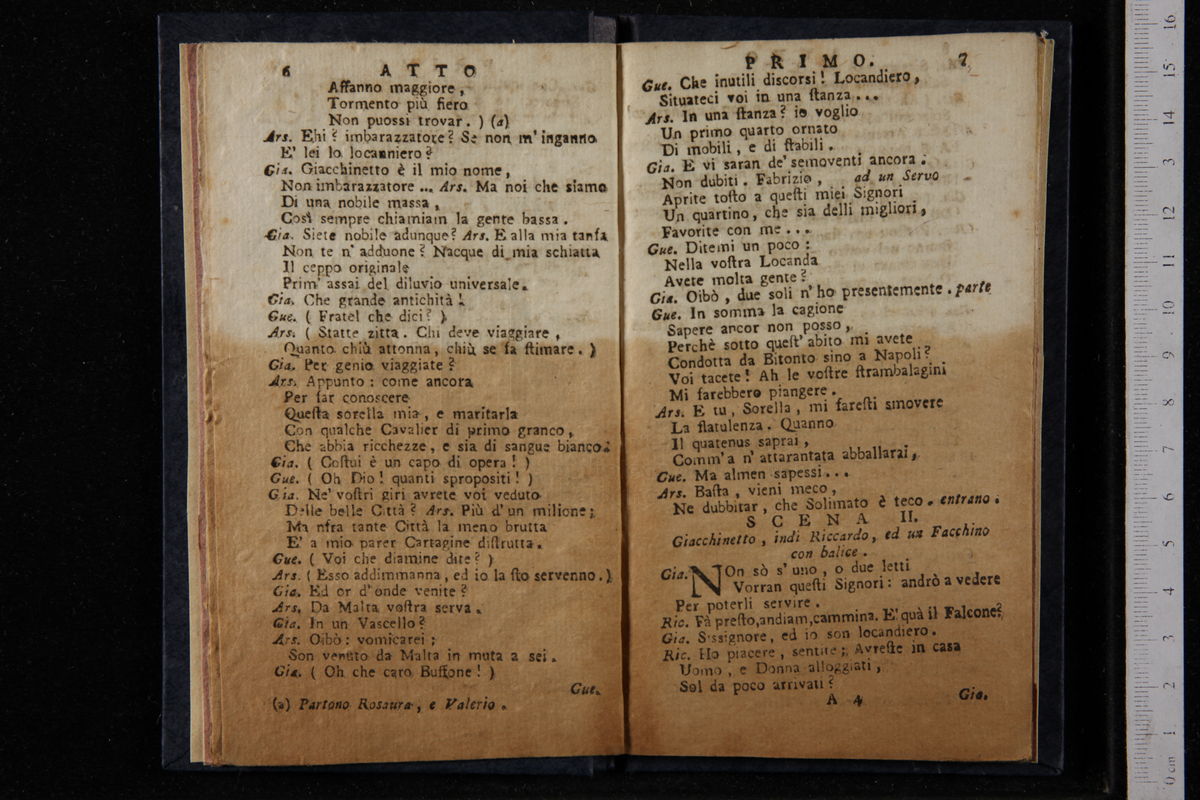 6 ATTO
Affanno maggiore,
Tormento più fiero
Non puossi trovar. ) (a)
Ars. Ehi? imbarazzatore? Se non m'inganno
E' lei lo locanniero?
Gia. Giacchinetto è il mio nome,
Non imbarazzatore ... Ars. Ma noi che siamo
Di una nobile massa,
Così sempre chiamiam la gente bassa.
Gia. Siete nobile adunque? Ars. E alla mia tanfa
Non te n'adduone? Nacque di mia schiatta
Il ceppo originale
Prim' assai del diluvio universale.
Gia. Che grande antichità!
Gue. ( Fratel che dici? )
Ars. ( Statte zitta. Chi deve viaggiare,
Quanto chiù attonna, chiù se fa ſtimare. )
Gia. Per genio viaggiate?
Ars. Appunto: come ancora
Per far conoscere
Queſta sorella mia, e maritarla
Con qualche Cavalier di primo granco,
Che abbia ricchezze, e sia di sangue bianco.
Gia. ( Coſtui è un capo di opera! )
Gue. ( Oh Dio! quanti spropositi! )
Gia. Ne' voſtri giri avrete voi veduto
Delle belle Città? Ars. Più d'un milione;
Ma nfra tante Città la meno brutta
E' a mio parer Cartagine diſtrutta.
Gue. ( Voi che diamine dite? )
Ars. ( Esso addimmanna, ed io la ſto servenno. )
Gia. Ed or d'onde venite?
Ars. Da Malta voſtra serva.
Gia. In un Vascello?
Ars. Oibò: vomicarei:
Son venuto da Malta in muta a sei.
Gia. ( Oh che caro Buffone! )
Gue.
(a) Partono Rosaura, e Valerio.
PRIMO. 7
Gue. Che inutili discorsi! Locandiero,
Situateci voi in una ſtanza...
Ars. In una ſtanza? io voglio
Un primo quarto ornato
Di mobili, e di ſtabili.
Gia. E vi saran de' semoventi ancora.
Non dubiti. Fabrizio, ad un Servo
Aprite toſto a queſti miei Signori
Un quartino, che sia delli migliori,
Favorite con me...
Gue. Ditemi un poco:
Nella voſtra Locanda
Avete molta gente?
Gia. Oibò, due soli n'ho presentemente. parte
Gue. In somma la cagione
Sapere ancor non posso,
Perchè sotto queſt'abito mi avete
Condotta da Bitonto sino a Napoli?
Voi tacete! Ah le voſtre ſtrambalagini
Mi farebbero piangere.
Ars. E tu, Sorella, mi fareſti smovere
La flatulenza. Quanno
Il quatenus saprai,
Comm'a n'attarantata abballarai,
Gue. Ma almen sapessi...
Ars. Baſta, vieni meco,
Ne dubbitar, che Solimato è teco. entrano.
SCENA II.
Giacchinetto, indi Riccardo, ed un Facchino
con balice.
Gia. NOn sò s'uno, o due letti
Vorran queſti Signori: andrò a vedere
Per poterli servire.
Ric. Fà preſto, andiam, cammina. E' quà il Falcone?
Gia. Sissignore, ed io son locandiero.
Ric. Ho piacere, sentite; Avreſte in casa
Uomo, e Donna alloggiati,
Sol da poco arrivati?
A 4 Gia.
16
15
14
13
12
11
10
9
8
7
6
5
4
3
2
1
0 cm